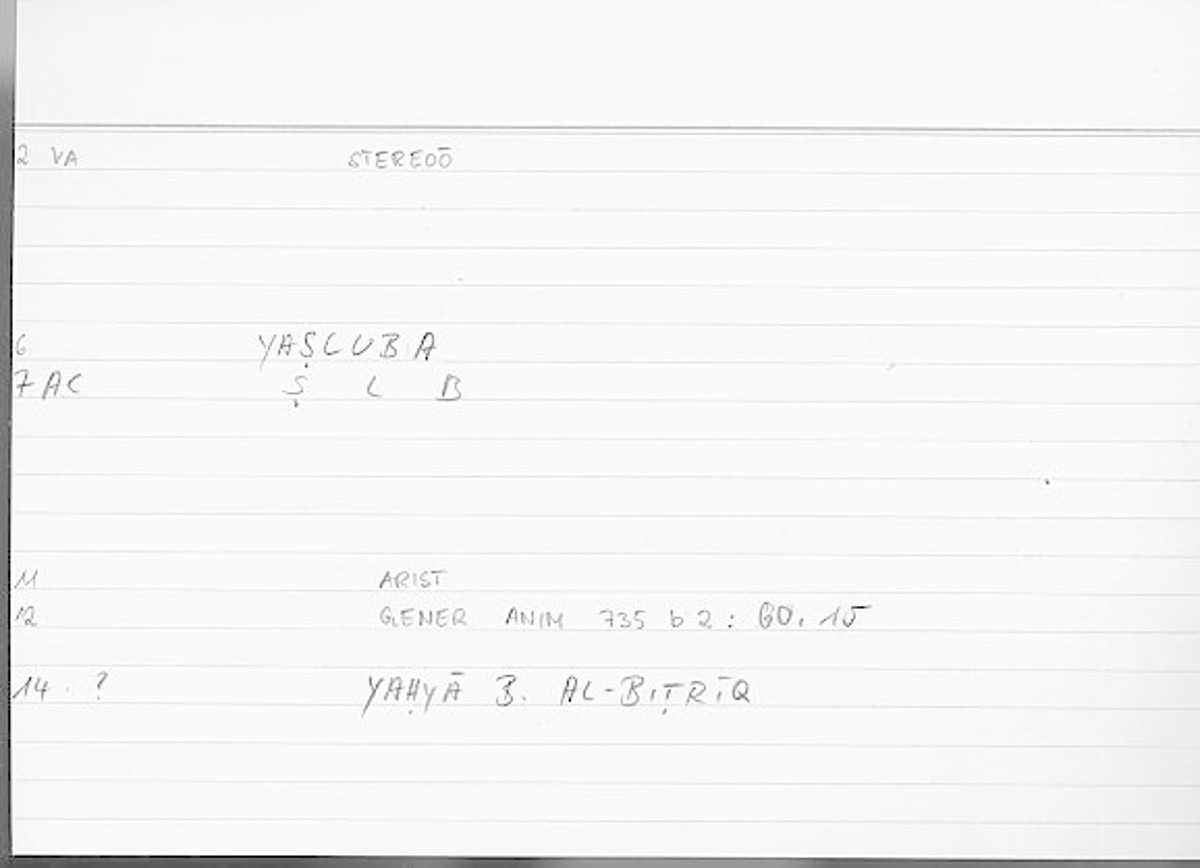 2 VA STEREOŌ
6 YAṢLUBA
7 AC Ṣ L B
11 ARIST
12 GENER ANIM 735 b 2 : 60.15
14 ? YAḤYĀ B. AL-BIṬRĪQ